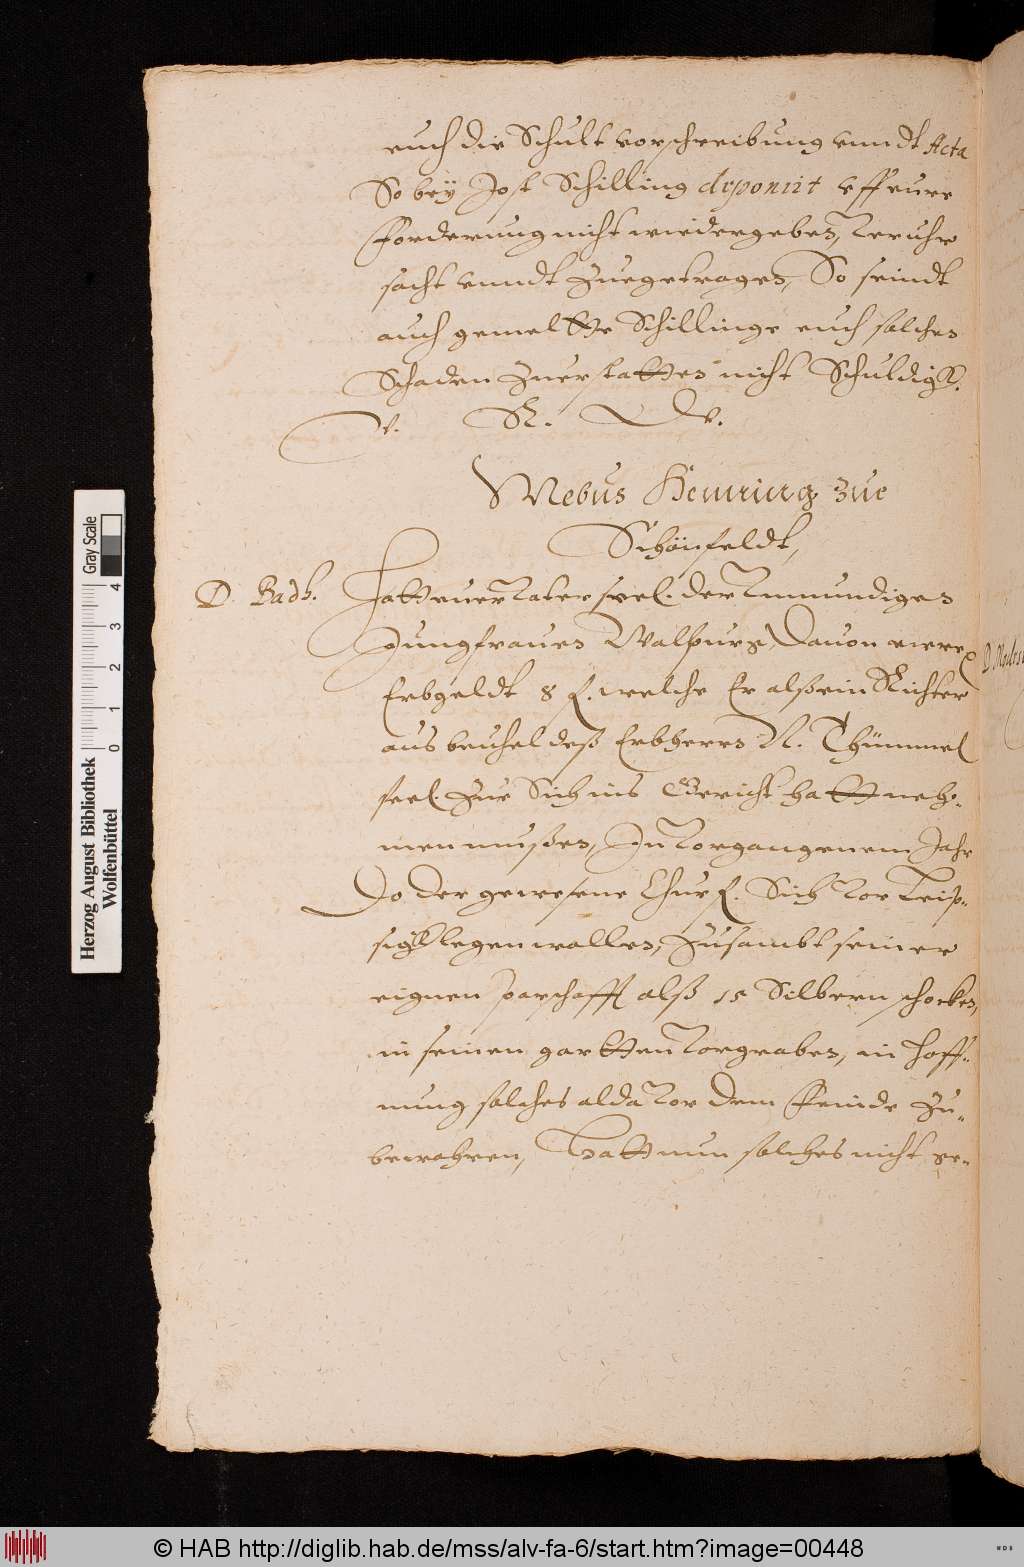 euch die Schult vorschreibung vnndt Acta
So bey Jost Schilling deponirt vff eure
forderung nicht wiedergeben, veruhr
sacht vnndt zuegetragen, So seindt
auch gemeltte Schillinge euch solchen
Schaden zuerstatten nicht Schuldigk.
V. R. W.
Mebus Heinrich zue
Schönfeldt,
D. Badh. Hatt euer Vater seel. der Vnmundigen
Jungfrauen Walpurg, Dauon
Erbgeldt 8 f. welche Er alß ein Richter
aus beuhel deß Erbherrn N. Thümmel
seel zue Sich ins Gericht hatt neh-
men mußen, In Vorgangenem Jahr
Do der gewesene Churf. Sich vor Leip-
sigk legen wollen, zusambt seiner
eignen parschafft alß 15 Silbern schocken,
in seinen gartten Vorgraben, in Hoff-
nung solches alda vor dem Feinde zu-
bewahren, Hatt nun solches nicht ge-
Herzog August Bibliothek
Wolfenbüttel
Gray Scale
0 1 2 3 4
© HAB http://diglib.hab.de/mss/alv-fa-6/start.htm?image=00448
WDB